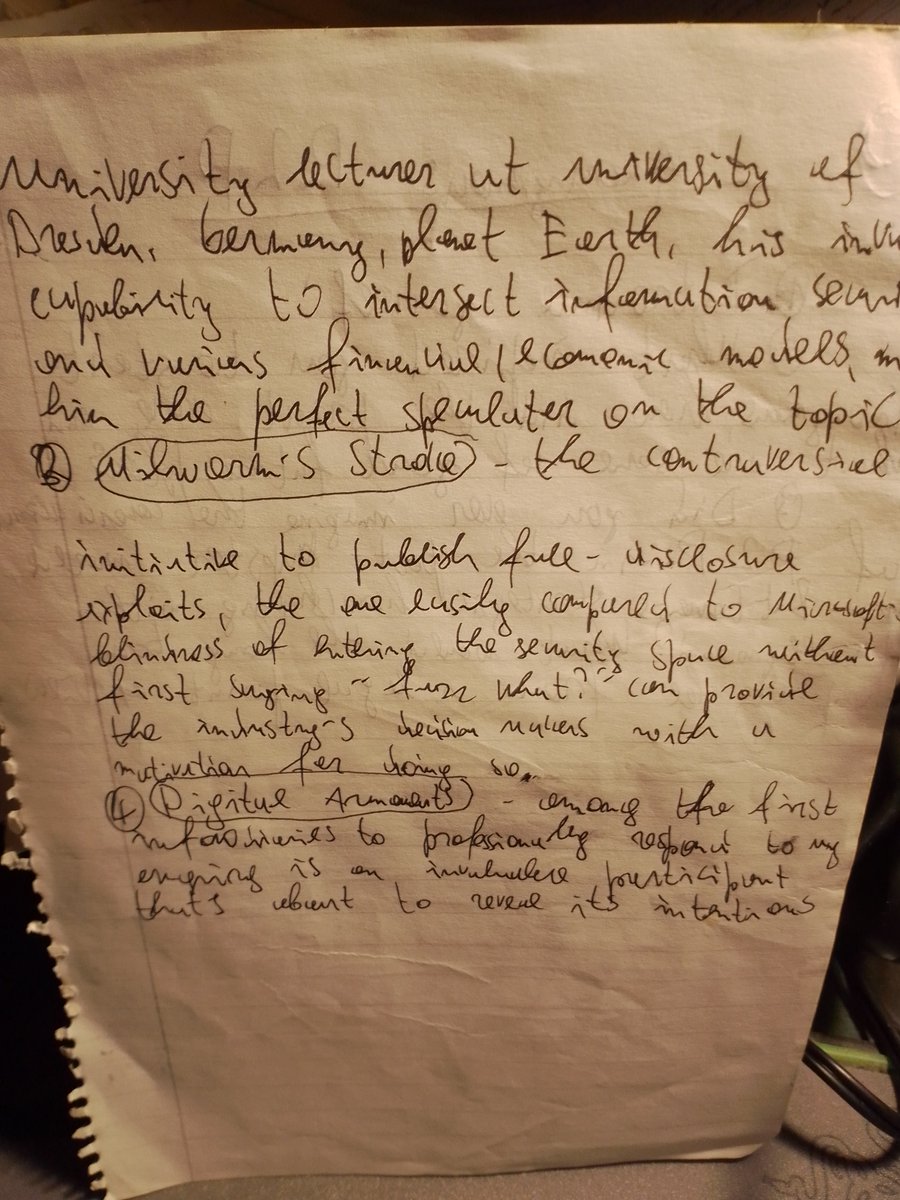 University lecturer at university of
Dresden, Germany, planet Earth, his
capability to intersect information
and various financial / economic models,
him the perfect speculator on the topic
③ Milw0rm's Str0ke - the controversial
initiative to publish full-disclosure
exploits, the one easily compared to Microsoft
blindness of entering the security space without
first saying "fuzz what?" can provide
the industry's decision makers with a
motivation for doing so.
④ Digital Armaments - among the first
infomediaries to professionally respond to my
enquiry is an invaluable participant
that's about to reveal its intentions